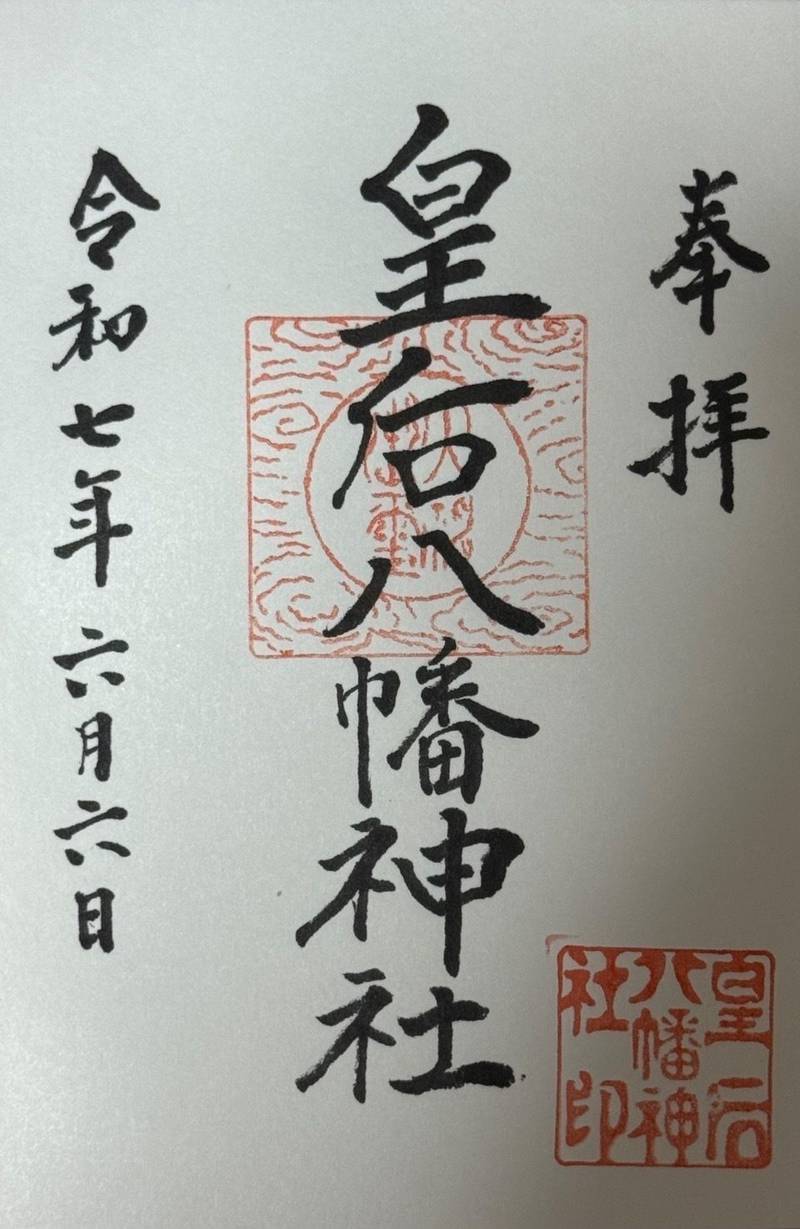 奉拝
皇后八幡神社
令和七年六月六日
皇后
八幡神
社印